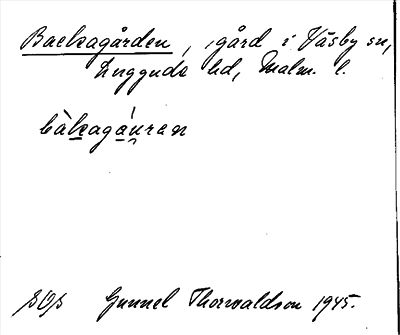 Backagården, gård i Väsby sn,
Luggude hd, Malm. l.
bàkagáu̯ren
SOS Gunnel Thorwaldson 1945.